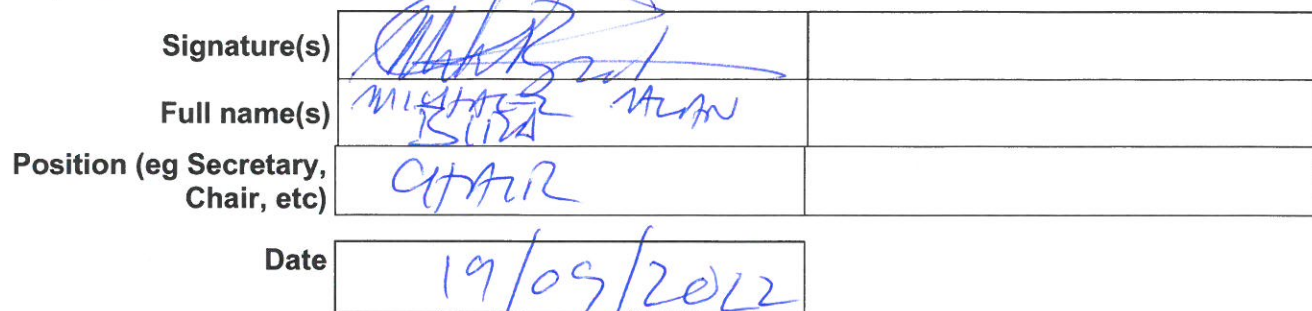 Signature(s)
Full name(s) MICHAEL ALAN
Position (eg Secretary,
Chair, etc) CHAIR
Date 19/09/2022